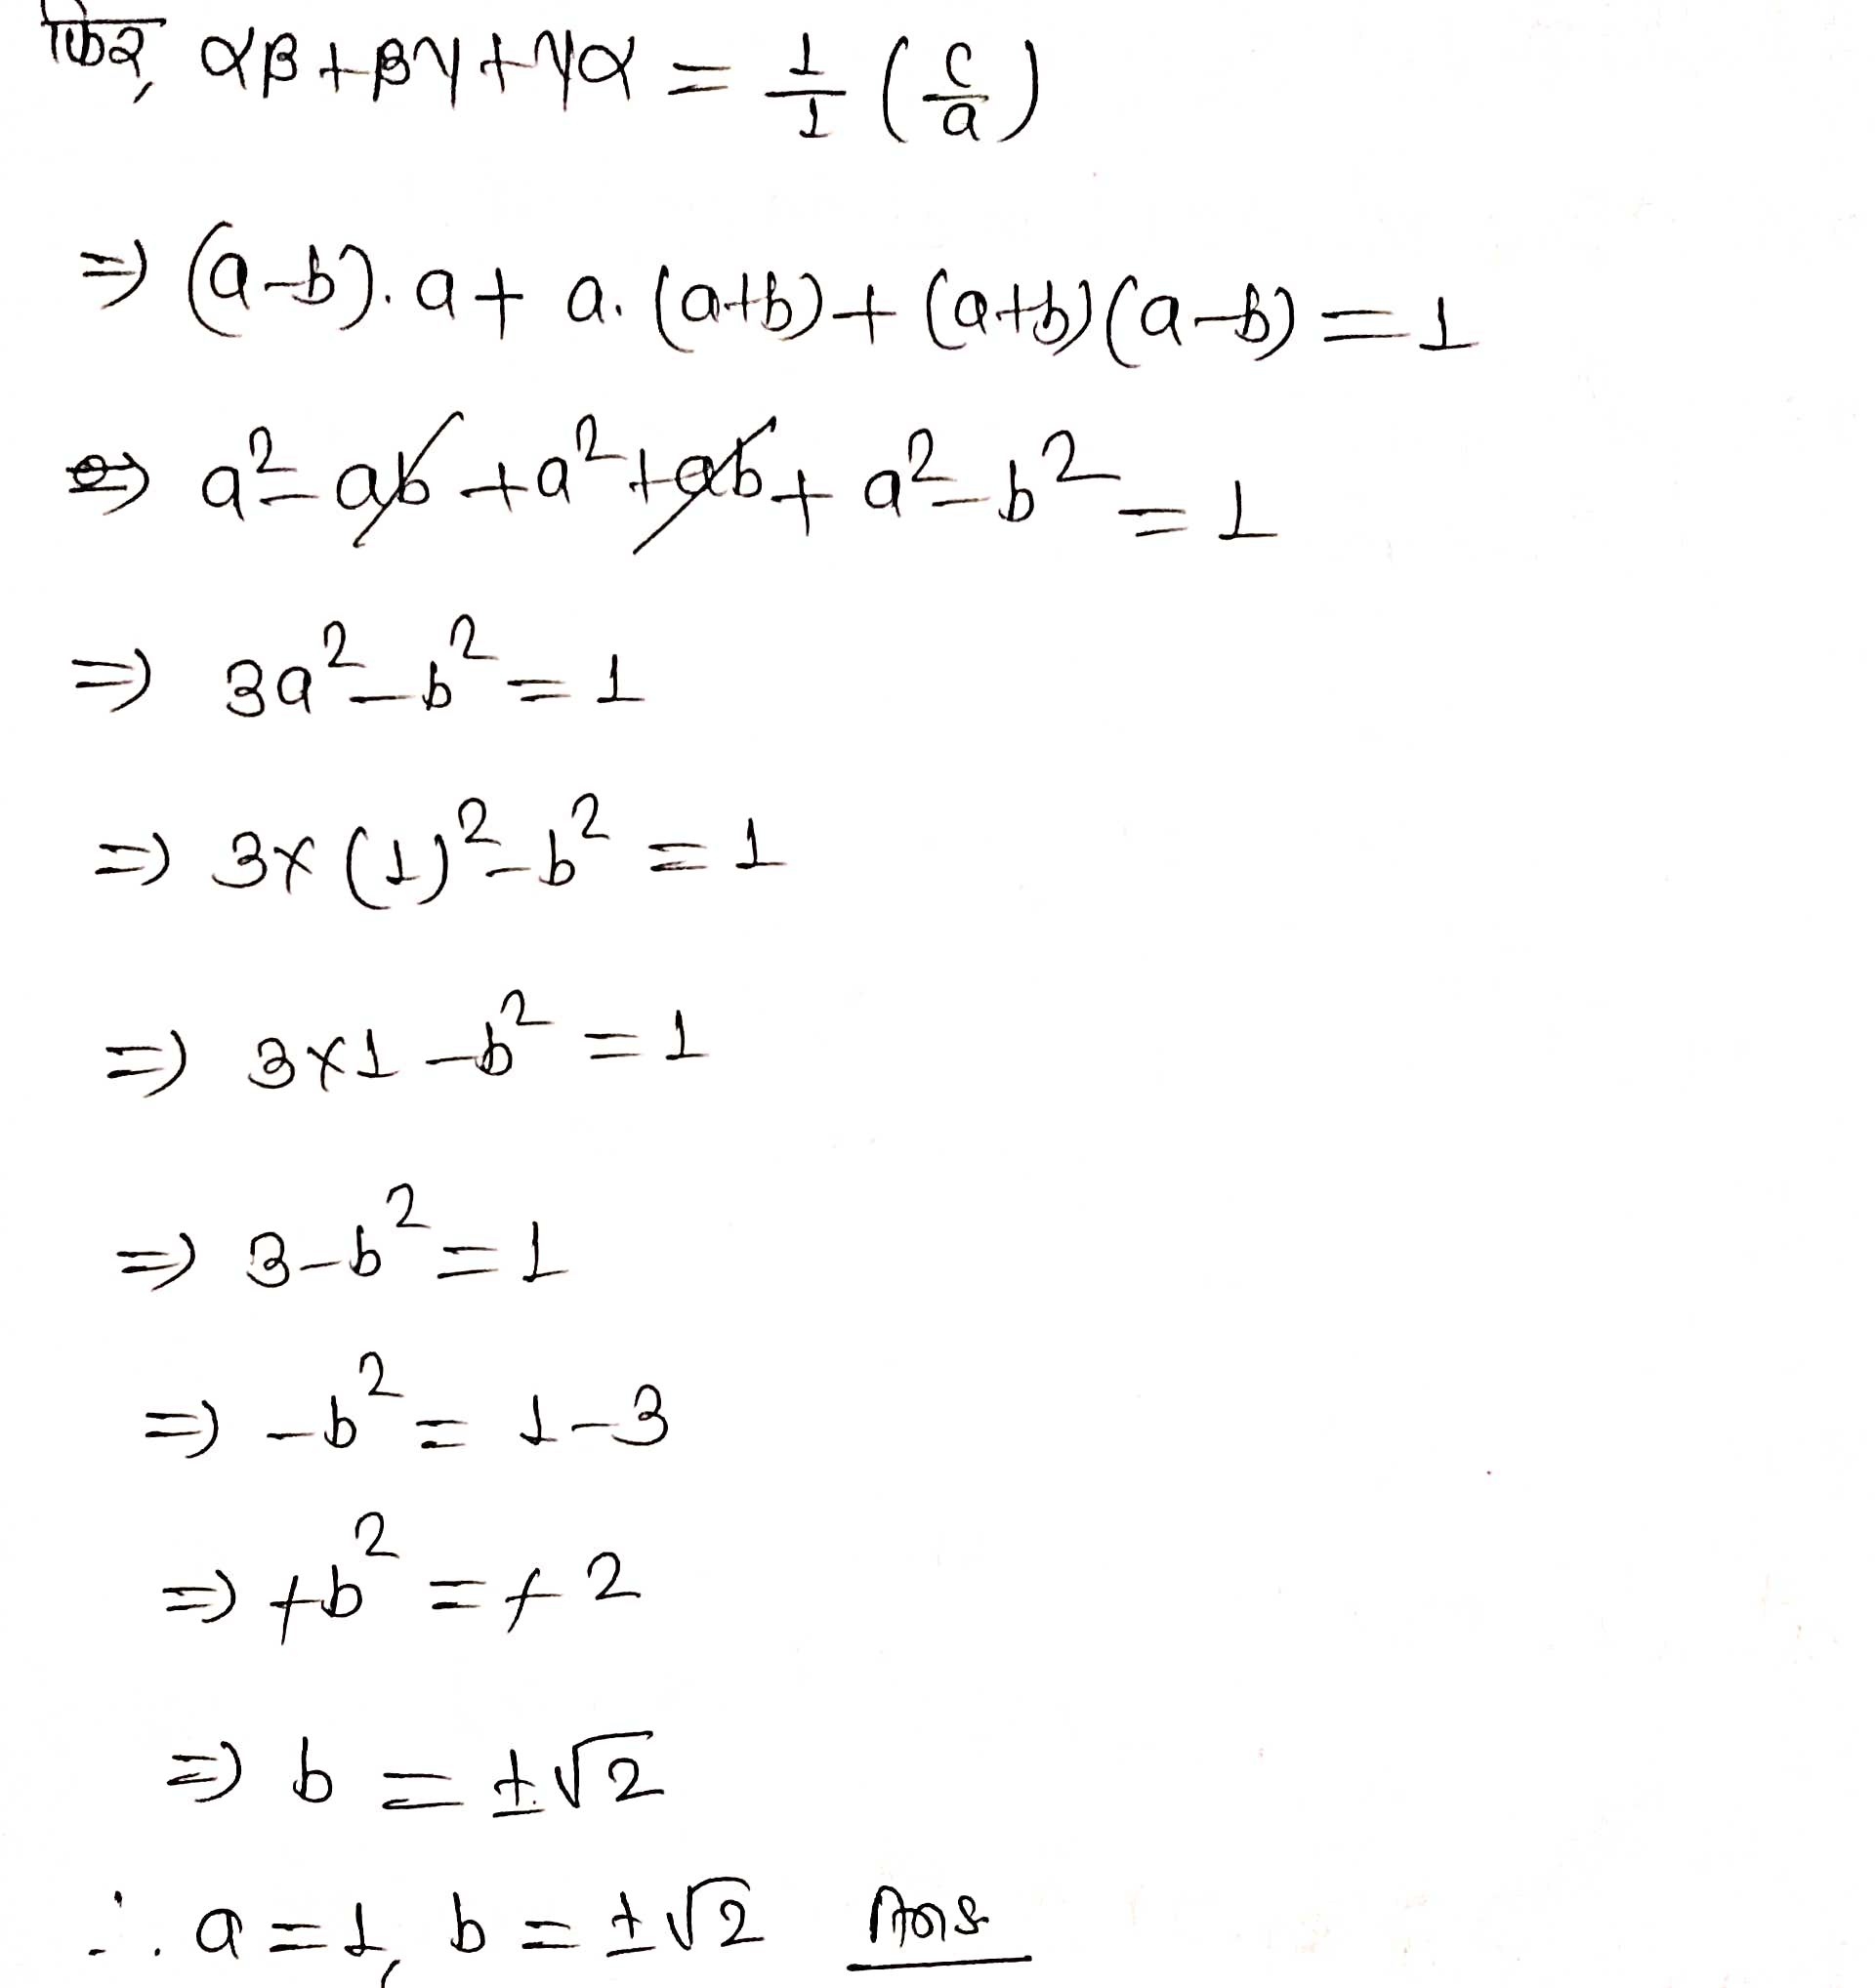 फिर, αβ+βγ+γα = 1/1 (c/a)
⇒ (a-b).a + a.(a+b)+(a+b)(a-b) = 1
⇒ a²-ab+a²+ab+a²-b² = 1
⇒ 3a²-b² = 1
⇒ 3×(1)²-b² = 1
⇒ 3×1-b² = 1
⇒ 3-b² = 1
⇒ -b² = 1-3
⇒ +b² = +2
⇒ b = ±√2
∴ a = 1, b = ±√2 Ans